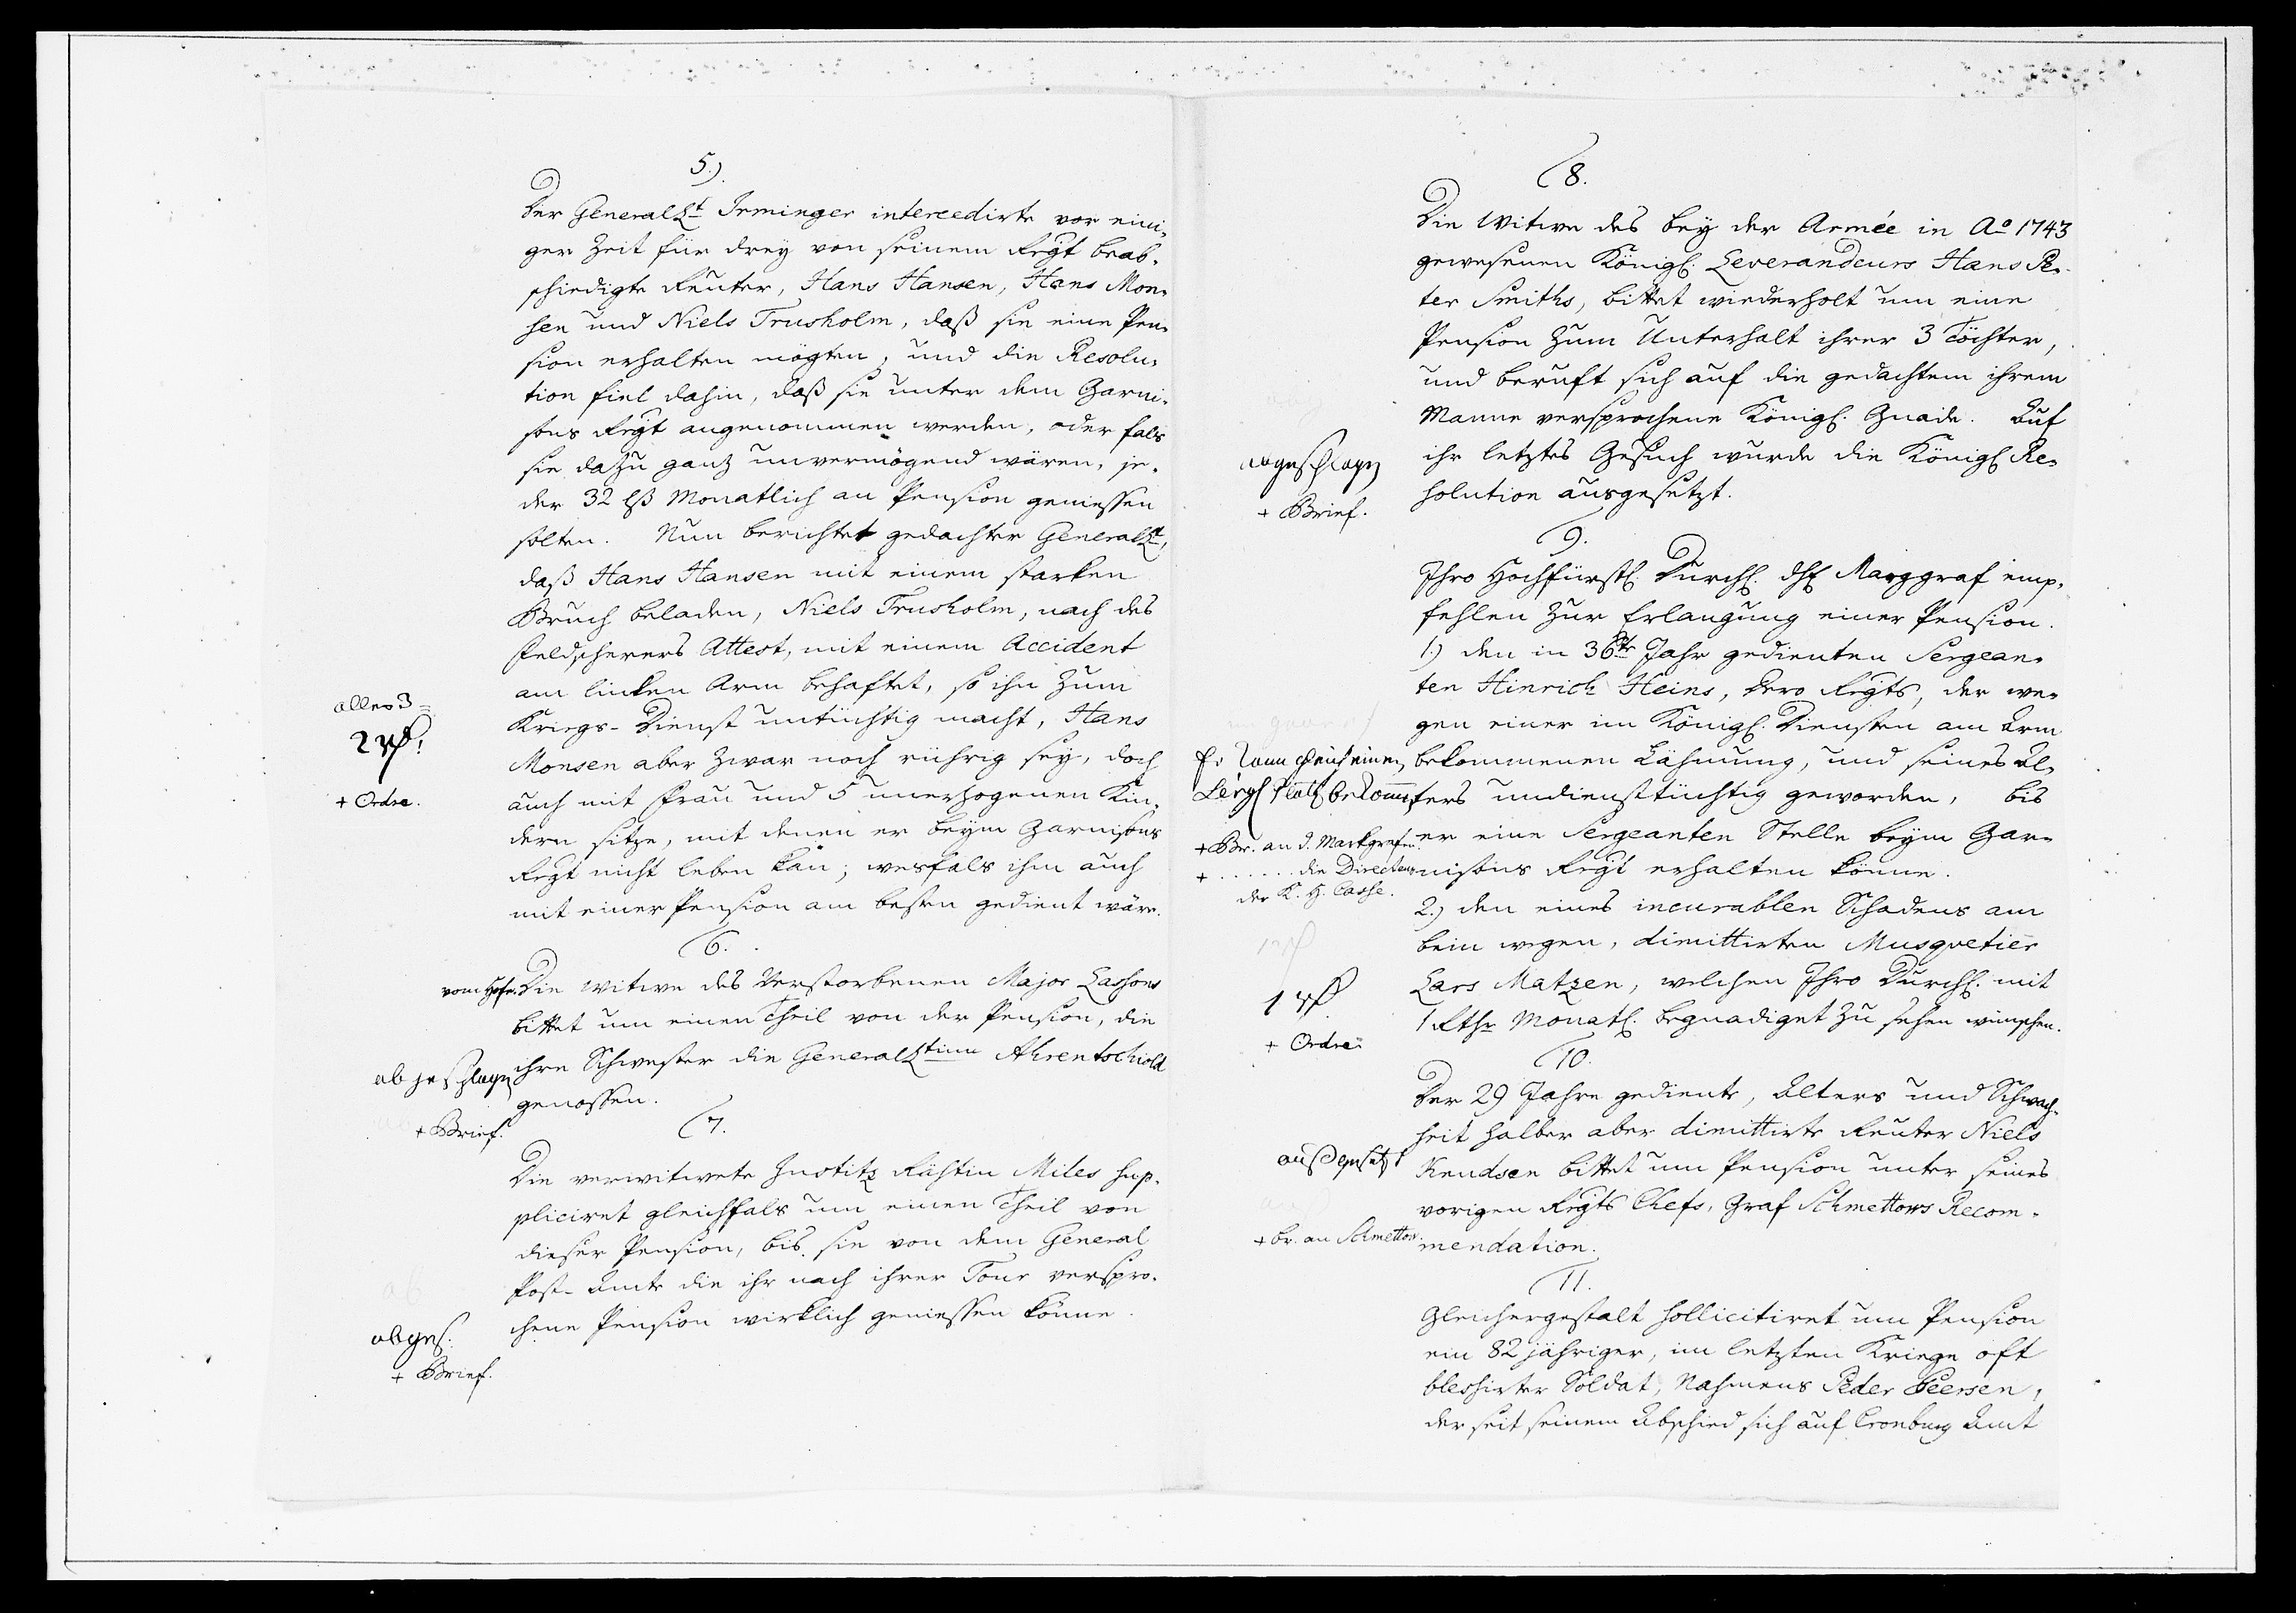 5.)
Der General Lt Irminger intercedirte vor eini-
ger Zeit für drey von seinem Regt beab-
schiedigte Reuter, Hans Hansen, Hans Mon-
sen und Niels Trusholm, daß sie eine Pen-
sion erhalten mögten, und die Resolu-
tion fiel dahin, daß sie unter dem Garni-
sons Regt angenommen werden, oder fals
sie dazu ganz unvermögend wären, je-
der 32 lß Monatlich an Pension geniessen
solten. Nun berichtet gedachter General Lt,
daß Hans Hansen mit einem starken
Bruch beladen, Niels Trusholm, nach des
Feldscherers Attest, mit einem Accident
am linken Arm behaftet, so ihn zum
Kriegs-Dienst untüchtig macht, Hans
Monsen aber zwar noch rührig sey, doch
auch mit Frau und 5 unerzogenen Kin-
dern sitze, mit denen er beym Garnisons
Regt nicht leben kan; wesfals ihm auch
mit einer Pension am besten gedient wäre.
alles 3
2 rß!
+ Ordre.
6.
vom Hofe.
Die Witwe des verstorbenen Major Lassons
bittet um einen Theil von der Pension, die
ihre Schwester die General Ltinn Ahrentschiold
genossen.
abgeschlagen
+ Brief.
7.
Die verwitwete Justitz Räthin Miles sup-
pliciret gleichfals um einen Theil von
dieser Pension, bis sie von dem General
Post-Amte die ihr nach ihrer Tour verspro-
chene Pension wirklich geniessen könne.
abges.
+ Brief.
8.
Die Witwe des bey der Armée in Ao 1743
gewesenen Königl. Leverandeurs Hans Pe-
ter Smiths, bittet wiederholt um eine
Pension zum Unterhalt ihrer 3 Töchter,
und beruft sich auf die gedachtem ihrem
Manne versprochene Königl. Gnade. Auf
ihr letztes Gesuch wurde die Königl Re-
solution ausgesetzt.
abgeschlagen
+ Brief.
9.
Ihro Hochfürstl. Durchl. dHl Marggraf emp-
fehlen zur Erlangung einer Pension.
1.) den in 36te Jahr gedienten Sergean-
ten Hinrich Heins, dero Regts, der we-
gen einer im Königl. Diensten am Arm
bekommenen Lähmung, und seines Al-
ters undiensttüchtig geworden, bis
er eine Sergeanten Stelle beym Gar-
nisons Regt erhalten könne.
Er kann gleich einen
Platz bekommen
+ Br. an d. Markgrafen.
+ . . . . . . die Directeurs
der K. H. Casse.
2.) den eines incurablen Schadens am
bein wegen, dimittirten Musqvetier
Lars Matzen, welchen Ihro Durchl. mit
1 Rthr Monatl. begnadiget zu sehen wünschen.
1 rß
+ Ordre
10.
Der 29 Jahre gediente, Alters und Schwach-
heit halber aber dimittirte Reuter Niels
Knudsen bittet um Pension unter seines
vorigen Regts Chefs, Graf Schmettows Recom-
mendation.
außgesetzt
+ br. an Schmettow.
11.
Gleichergestalt sollicitiret um Pension
ein 82 jähriger, im letzten Kriege oft
blessirter Soldat, Nahmens Peder Peersen,
der seit seinem Abschied sich auf Cronburg Amt